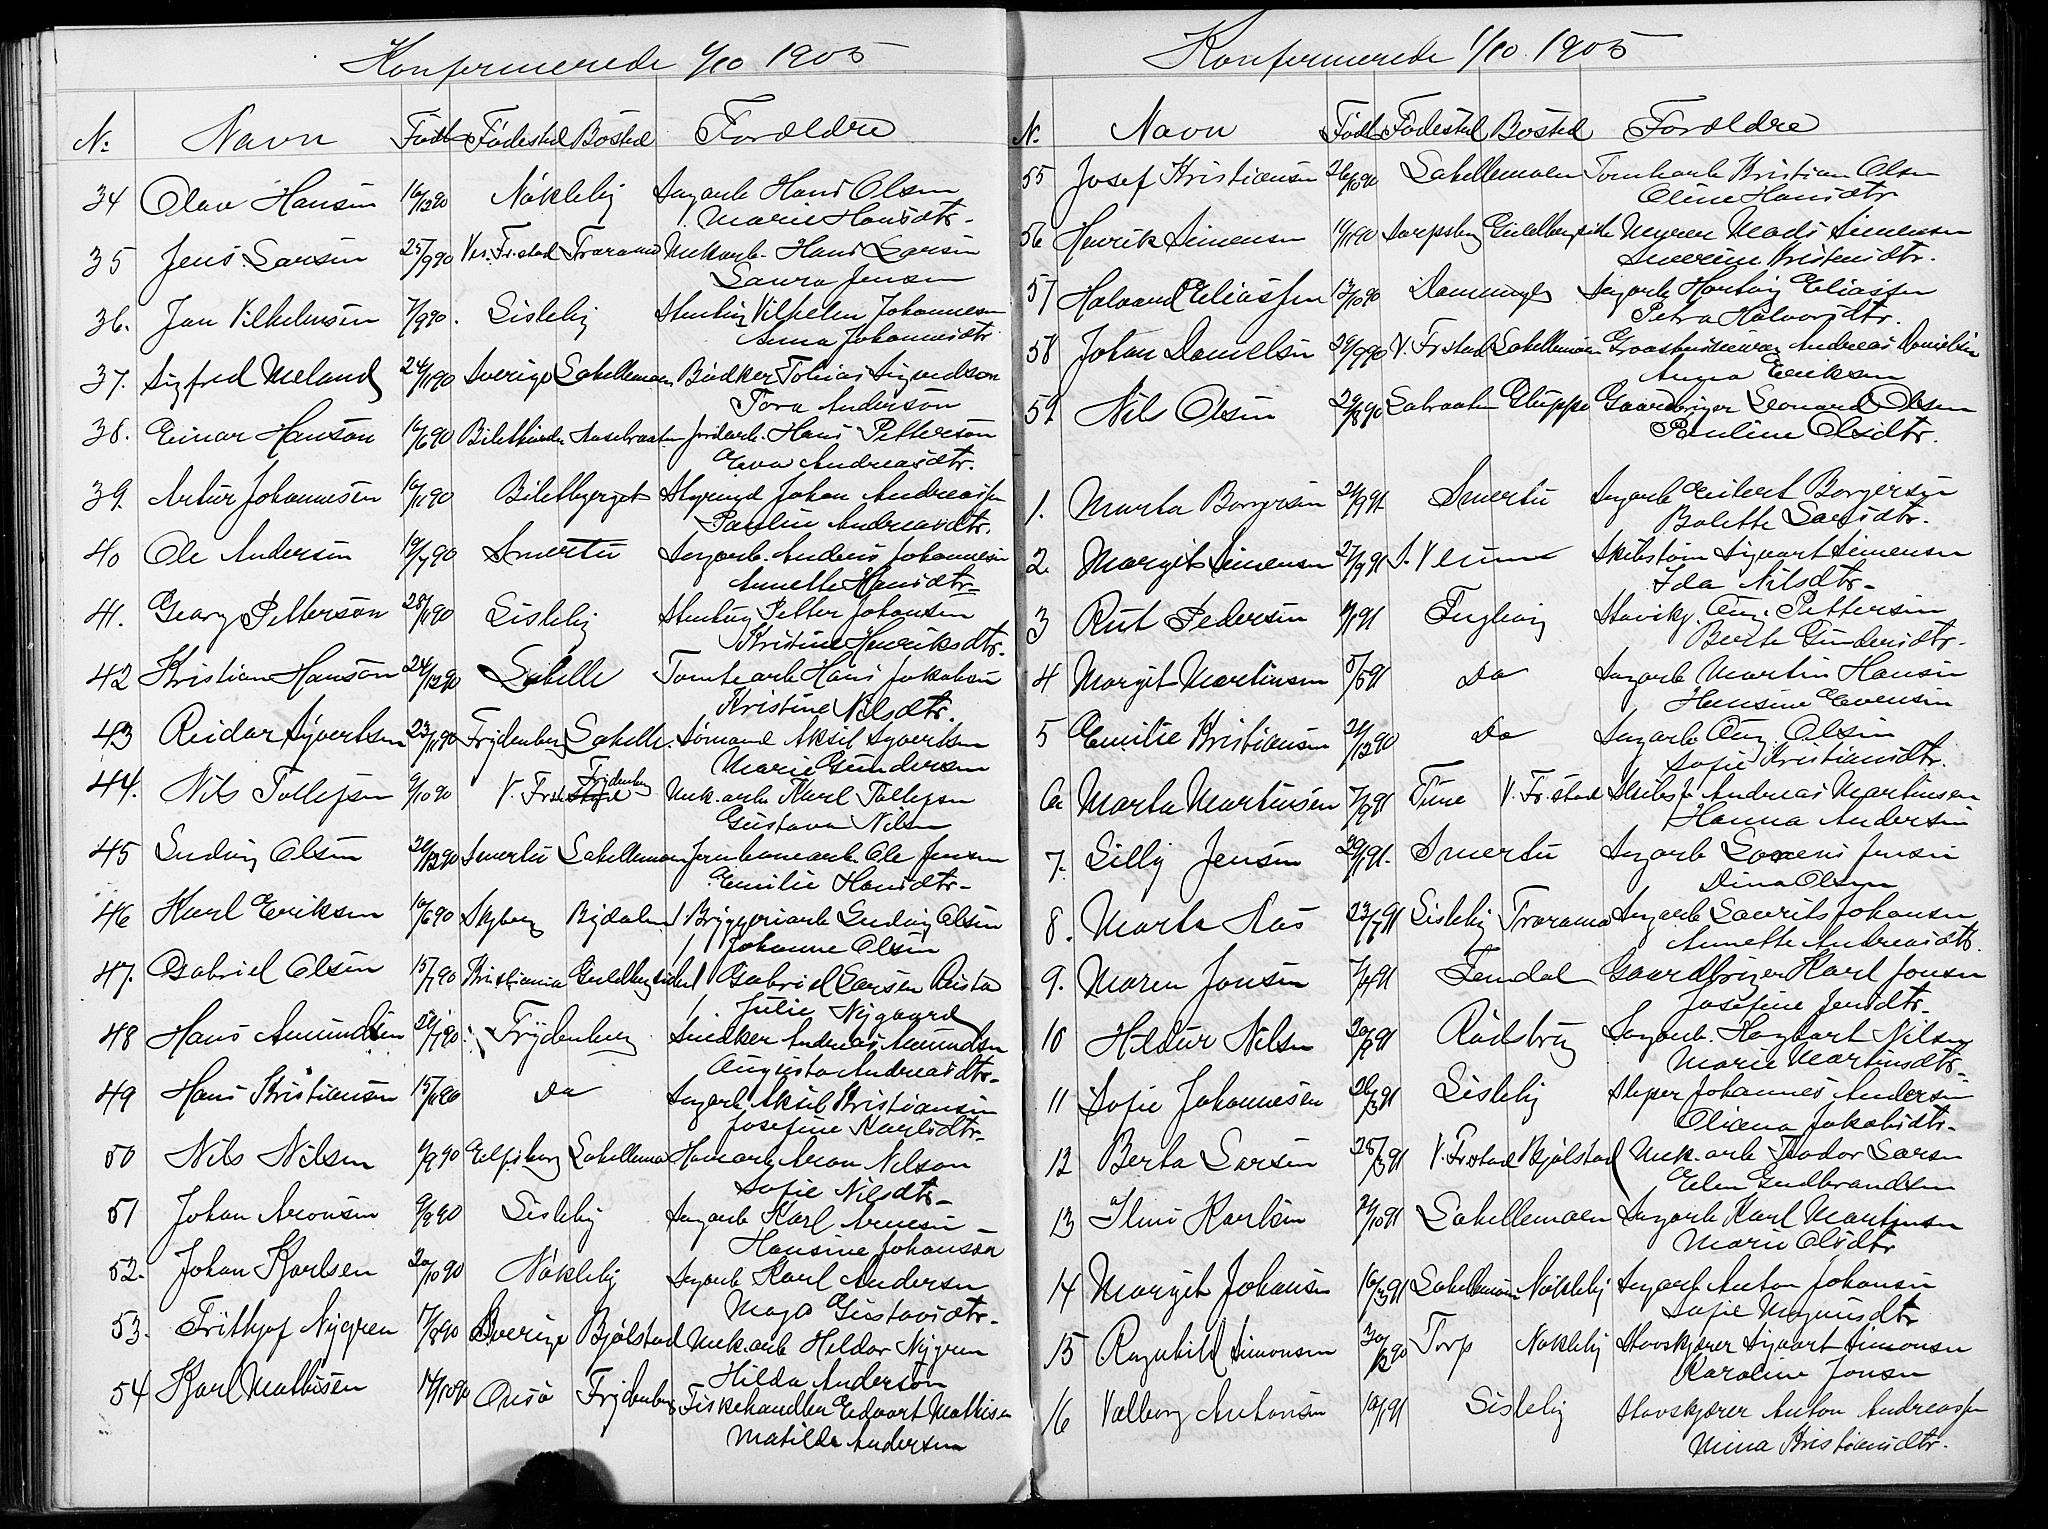 Konfermerede 1/10 1905
N. Navn Født Fødested Bosted Forældre
34 Olav Hansen 16/12 90 Nökleby Sagarb Hans Olsen
Marie Hansdtr.
35 Jens Larsen 25/9 90 Ves. Fr.stad Traraand Mekarb. Hans Larsen
Laura Jensen
36. Jan Vilhelmsen 7/9 90. Lisleby Stenhug Vilhelm Johannesen
Anna Johannesdtr
37. Sigfred Meland 24/11 90 Sverige Labellemoen Bödker Tobias Sigundson
Tora Anderson
38. Einar Hanson 16/6 90 Jordarb. Hans Petterson
Eva Andreasdtr.
39. Artur Johannesen 16/11 90 Biletbjerget Styrmd Johan Andreassen
Pauline Andreasdtr.
40 Ole Andersen 19/7 90 Smertu Sagarb. Anders Johannesen
Annette Hansdtr.
41. Georg Petterson 28/11 90 Lisleby Stenhug Petter Johansen
Kristine Henriksdtr.
42 Kristian Hanson 24/12 90 Labelle Tomtearb Hans Jakobsen
Kristine Nilsdtr.
43 Reidar Syvertsen 23/11 90 Frydenberg Labelle. Sömand Aksel Syvertsen
Marie Gundersen
44. Nils Tollefsen 9/10 90 V. Fr.stad Frydenberg Mek.arb Karl Tollefsen
Gustava Nilsen
45 Ludvig Olsen 20/12 90 Smertu Labellemoen Jernbanearb. Ole Jensen
Emilie Hansdtr.
46 Karl Eriksen 16/6 90 Skyberg Rydalen / Bryggeriarb Ludvig Olsen
/ Johanne Olsen
47. Gabriel Olsen 15/7 90 Kristiania Guldbergsiden / Gabriel Larsen Reistad
/ Julie Nygaard
48 Hans Amundsen 28/7 90 Frydenberg Snedker Andreas Amundsen
Augusta Andreasdtr.
49 Hans Kristiansen 15/11 90 Do Sagarb Aksel Kristiansen
Josefine Karlsdtr.
50 Nils Nilsen 6/9 90 Elfsborg Labellemo Havnearb Aron Nilson
Sofie Nilsdtr.
51 Johan Aronsen 9/9 90 Lisleby Sagarb Karl Arnesen
Hansine Johanssen
52. Johan Karlsen 20/10 90 Nökleby Sagarb Karl Andersen
Maja Gustavsdtr.
53. Frithjof Nygren 17/8 90 Sverige Bjölstad Mek.arb Heldor Nygren
Hilda Anderson
54 Karl Mathisen 14/10 90 Onsö Frydenberg Fiskehandler Edvart Mathisen
Matilde Andersen
Konfermerede 1/10 1905
N. Navn Født Fødested Bosted Forældre
55 Josef Kristiansen 26/10 90 Labellemoen Tomtearb Kristian Olsen
Oline Hansdtr
56 Henrik Simensen 11/11 90 Sarpsborg Guldbergside Murer Mads Simensen
Severine Kristensdtr.
57 Halvard Eliassen 13/10 90 Sagarb Hartvig Eliassen
Petra Halvorsdtr.
58 Johan Danielsen 29/9 90 V. Frstad Labellemoen Andreas Danielsen
Anna Eriksen
59. Nils Olsen 29/8 90 Labraaten Gluppe Gaardbruger Leonard Olsen
Pauline Olsdtr.
1. Marta Borgersen 24/9 91 Smertu Sagarb Eilert Borgersen
Bolette Larsdtr.
2. Margit Simensen 27/9 91 S. Verum Skibstøm Sigvart Simensen
Ida Nilsdtr.
3 Rut Pedersen 9/1 91 Fuglevig Stavskj. Aug. Pettersen
Berte Gundersdtr.
4 Margit Martinsen 5/5 91 Do Sagarb Martin Hansen
Hensine Evensen
5 Emilie Kristiansen 21/12 90 Do Sagarb Aug. Olsen
Sofie Kristiansdtr.
6 Marta Martinsen 7/9 91 Tune V. Fr.stad Andreas Martinsen
Hanna Andersen
7. Lilly Jensen 29/1 91. Smertu Sagarb Lorens Jensen
Dina Olsen
8. Marta Aas 23/7 91 Lisleby Traraand Sagarb Laurits Johansen
Annette Andreasdtr.
9. Maren Jonsen 7/4 91 Femdal Gaardbruger Karl Jonsen
Josefine Jensdtr.
10 Hildur Nilsen 20/9 91 Rödsbrug Sagarb. Hagbart Nilsen
Marie Martinsdtr.
11 Sofie Johannesen 26/3 91 Lisleby Sliper Johannes Andersen
Oliana Jakobsdtr.
12 Berta Larsen 28/3 91 V. Fr.stad Bjölstad Mek.arb Teodor Larsen
Elen Gudbrandsen
13 Karlsen 21/10 91 Labellemoen Sagarb Karl Martinsen
Marie Olsdtr
14 Margit Johansen 16/3 91 Labellemoen Nökleby Sagarb Anton Johansen
Sofie Magnusdtr
15 Ragnhild Simonsen 30/12 90 Torp Nökleby Stavskjærer Sigvart Simonsen
Karoline Jonsen
16 Valborg Antonsen 10/1 91 Lisleby Stavskjærer Anton Andreassen
Mina Kristiansdtr.